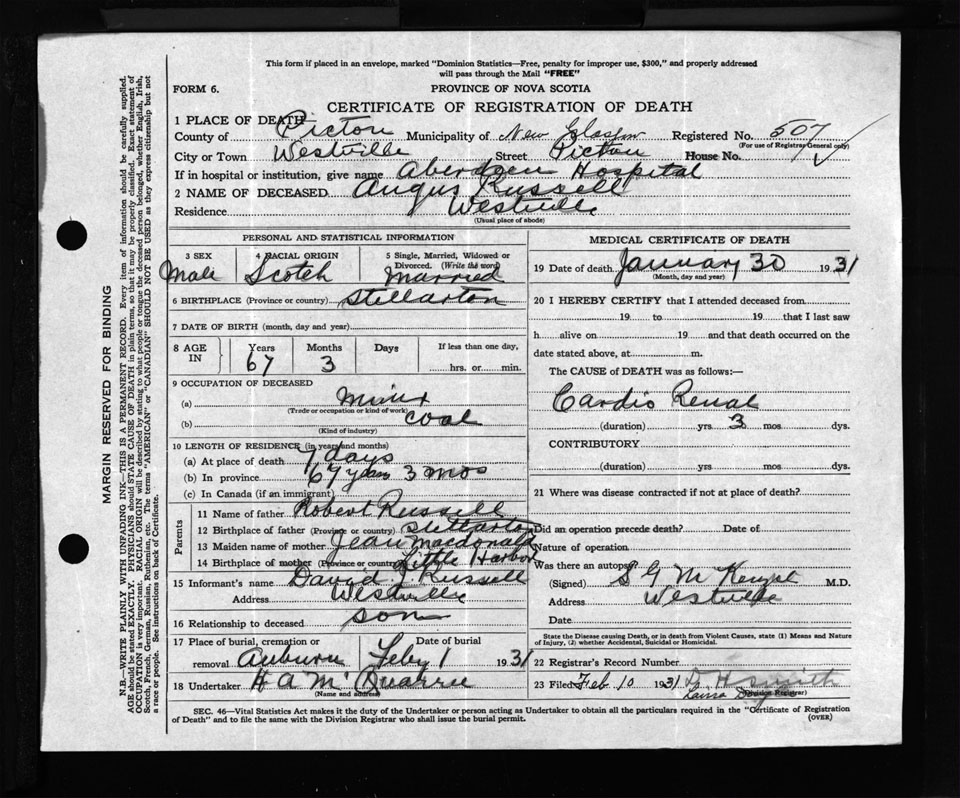 This form if placed in an envelope, marked "Dominion Statistics—Free, penalty for improper use, $300," and properly addressed
will pass through the Mail "FREE"
FORM 6. PROVINCE OF NOVA SCOTIA
CERTIFICATE OF REGISTRATION OF DEATH
1 PLACE OF DEATH—
County of Pictou Municipality of New Glasgow Registered No. 507
(For use of Registrar General only)
City or Town Westville Street Pictou House No.
If in hospital or institution, give name Aberdeen Hospital
2 NAME OF DECEASED Angus Russell
Residence Westville
(Usual place of abode)
PERSONAL AND STATISTICAL INFORMATION
3 SEX 4 RACIAL ORIGIN 5 Single, Married, Widowed or Divorced. (Write the word)
Male Scotch Married
6 BIRTHPLACE (Province or country) Stellarton
7 DATE OF BIRTH (month, day and year)
8 AGE IN Years Months Days If less than one day,
67 3 hrs. or min.
9 OCCUPATION OF DECEASED
(a) Miner
(Trade or occupation or kind of work)
(b) Coal
(Kind of industry)
10 LENGTH OF RESIDENCE (in years and months)
(a) At place of death 7 days
(b) In province 67 years 3 mos
(c) In Canada (if an immigrant)
Parents
11 Name of father Robert Russell
12 Birthplace of father (Province or country) Stellarton
13 Maiden name of mother Jean Macdonald
14 Birthplace of mother (Province or country) Little Harbor
15 Informant's name David J. Russell
Address Westville
16 Relationship to deceased son
17 Place of burial, cremation or removal Auburn Date of burial Feby 1 1931
18 Undertaker H A McQuarrie
(Name and address)
MEDICAL CERTIFICATE OF DEATH
19 Date of death January 30 1931
(Month, day and year)
20 I HEREBY CERTIFY that I attended deceased from
19 to 19 that I last saw
h alive on 19 and that death occurred on the
date stated above, at m.
The CAUSE of DEATH was as follows:—
Cardio Renal
(duration) yrs 3 mos dys.
CONTRIBUTORY
(duration) yrs. mos. dys.
21 Where was disease contracted if not at place of death?
Did an operation precede death? Date of
Nature of operation
Was there an autopsy
(Signed) M.D.
Address Westville
Date
State the Disease causing Death, or in death from Violent Causes, state (1) Means and Nature
of Injury, (2) whether Accidental, Suicidal or Homicidal.
22 Registrar's Record Number
23 Filed Feb 10 1931 Smith
(Division Registrar)
SEC. 46—Vital Statistics Act makes it the duty of the Undertaker or person acting as Undertaker to obtain all the particulars required in the "Certificate of Registration
of Death" and to file the same with the Division Registrar who shall issue the burial permit. (OVER)
MARGIN RESERVED FOR BINDING
N.B.—WRITE PLAINLY WITH UNFADING INK—THIS IS A PERMANENT RECORD. Every item of information should be carefully supplied.
AGE should be stated EXACTLY. PHYSICIANS should STATE CAUSE OF DEATH in plain terms, so that it may be properly classified. Exact statement of
OCCUPATION is very important. RACIAL ORIGIN will be described by stating to what people or tongue the deceased person belonged, whether English, Irish,
Scotch, French, German, Russian, Ruthenian, etc. The terms "AMERICAN" or "CANADIAN" SHOULD NOT BE USED as they express citizenship but not
a race or people. See instructions on back of Certificate.